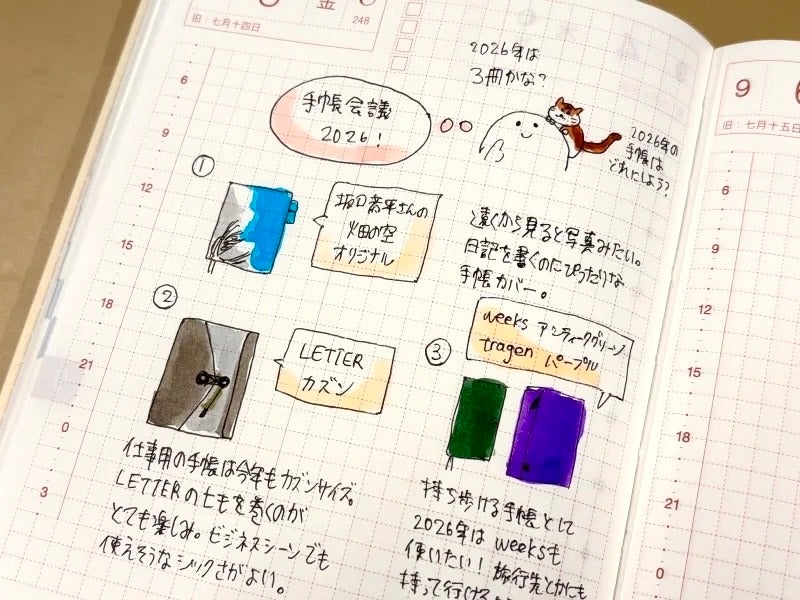 金
248
旧:七月十四日
2026年は
3冊かな?
手帳会議
2026!
2026年の
手帳は
どれにしよう?
①
坂口恭平さんの
畑の空
オリジナル
遠くから見ると写真みたい。
日記を書くのにぴったりな
手帳カバー。
②
LETTER
カズン
③
weeks アンティークグリーン
tragen パープル
仕事用の手帳は今年もカズンサイズ。
LETTERのヒモを巻くのが
とても楽しみ。ビジネスシーンでも
使えそうなシックさがよい。
持ち歩ける手帳として
2026年は weeksも
使いたい!旅行先とかにも
持って行ける
6
9
12
15
18
21
0
3
9
旧:七月十五日
6
9
12
15
18
21
0